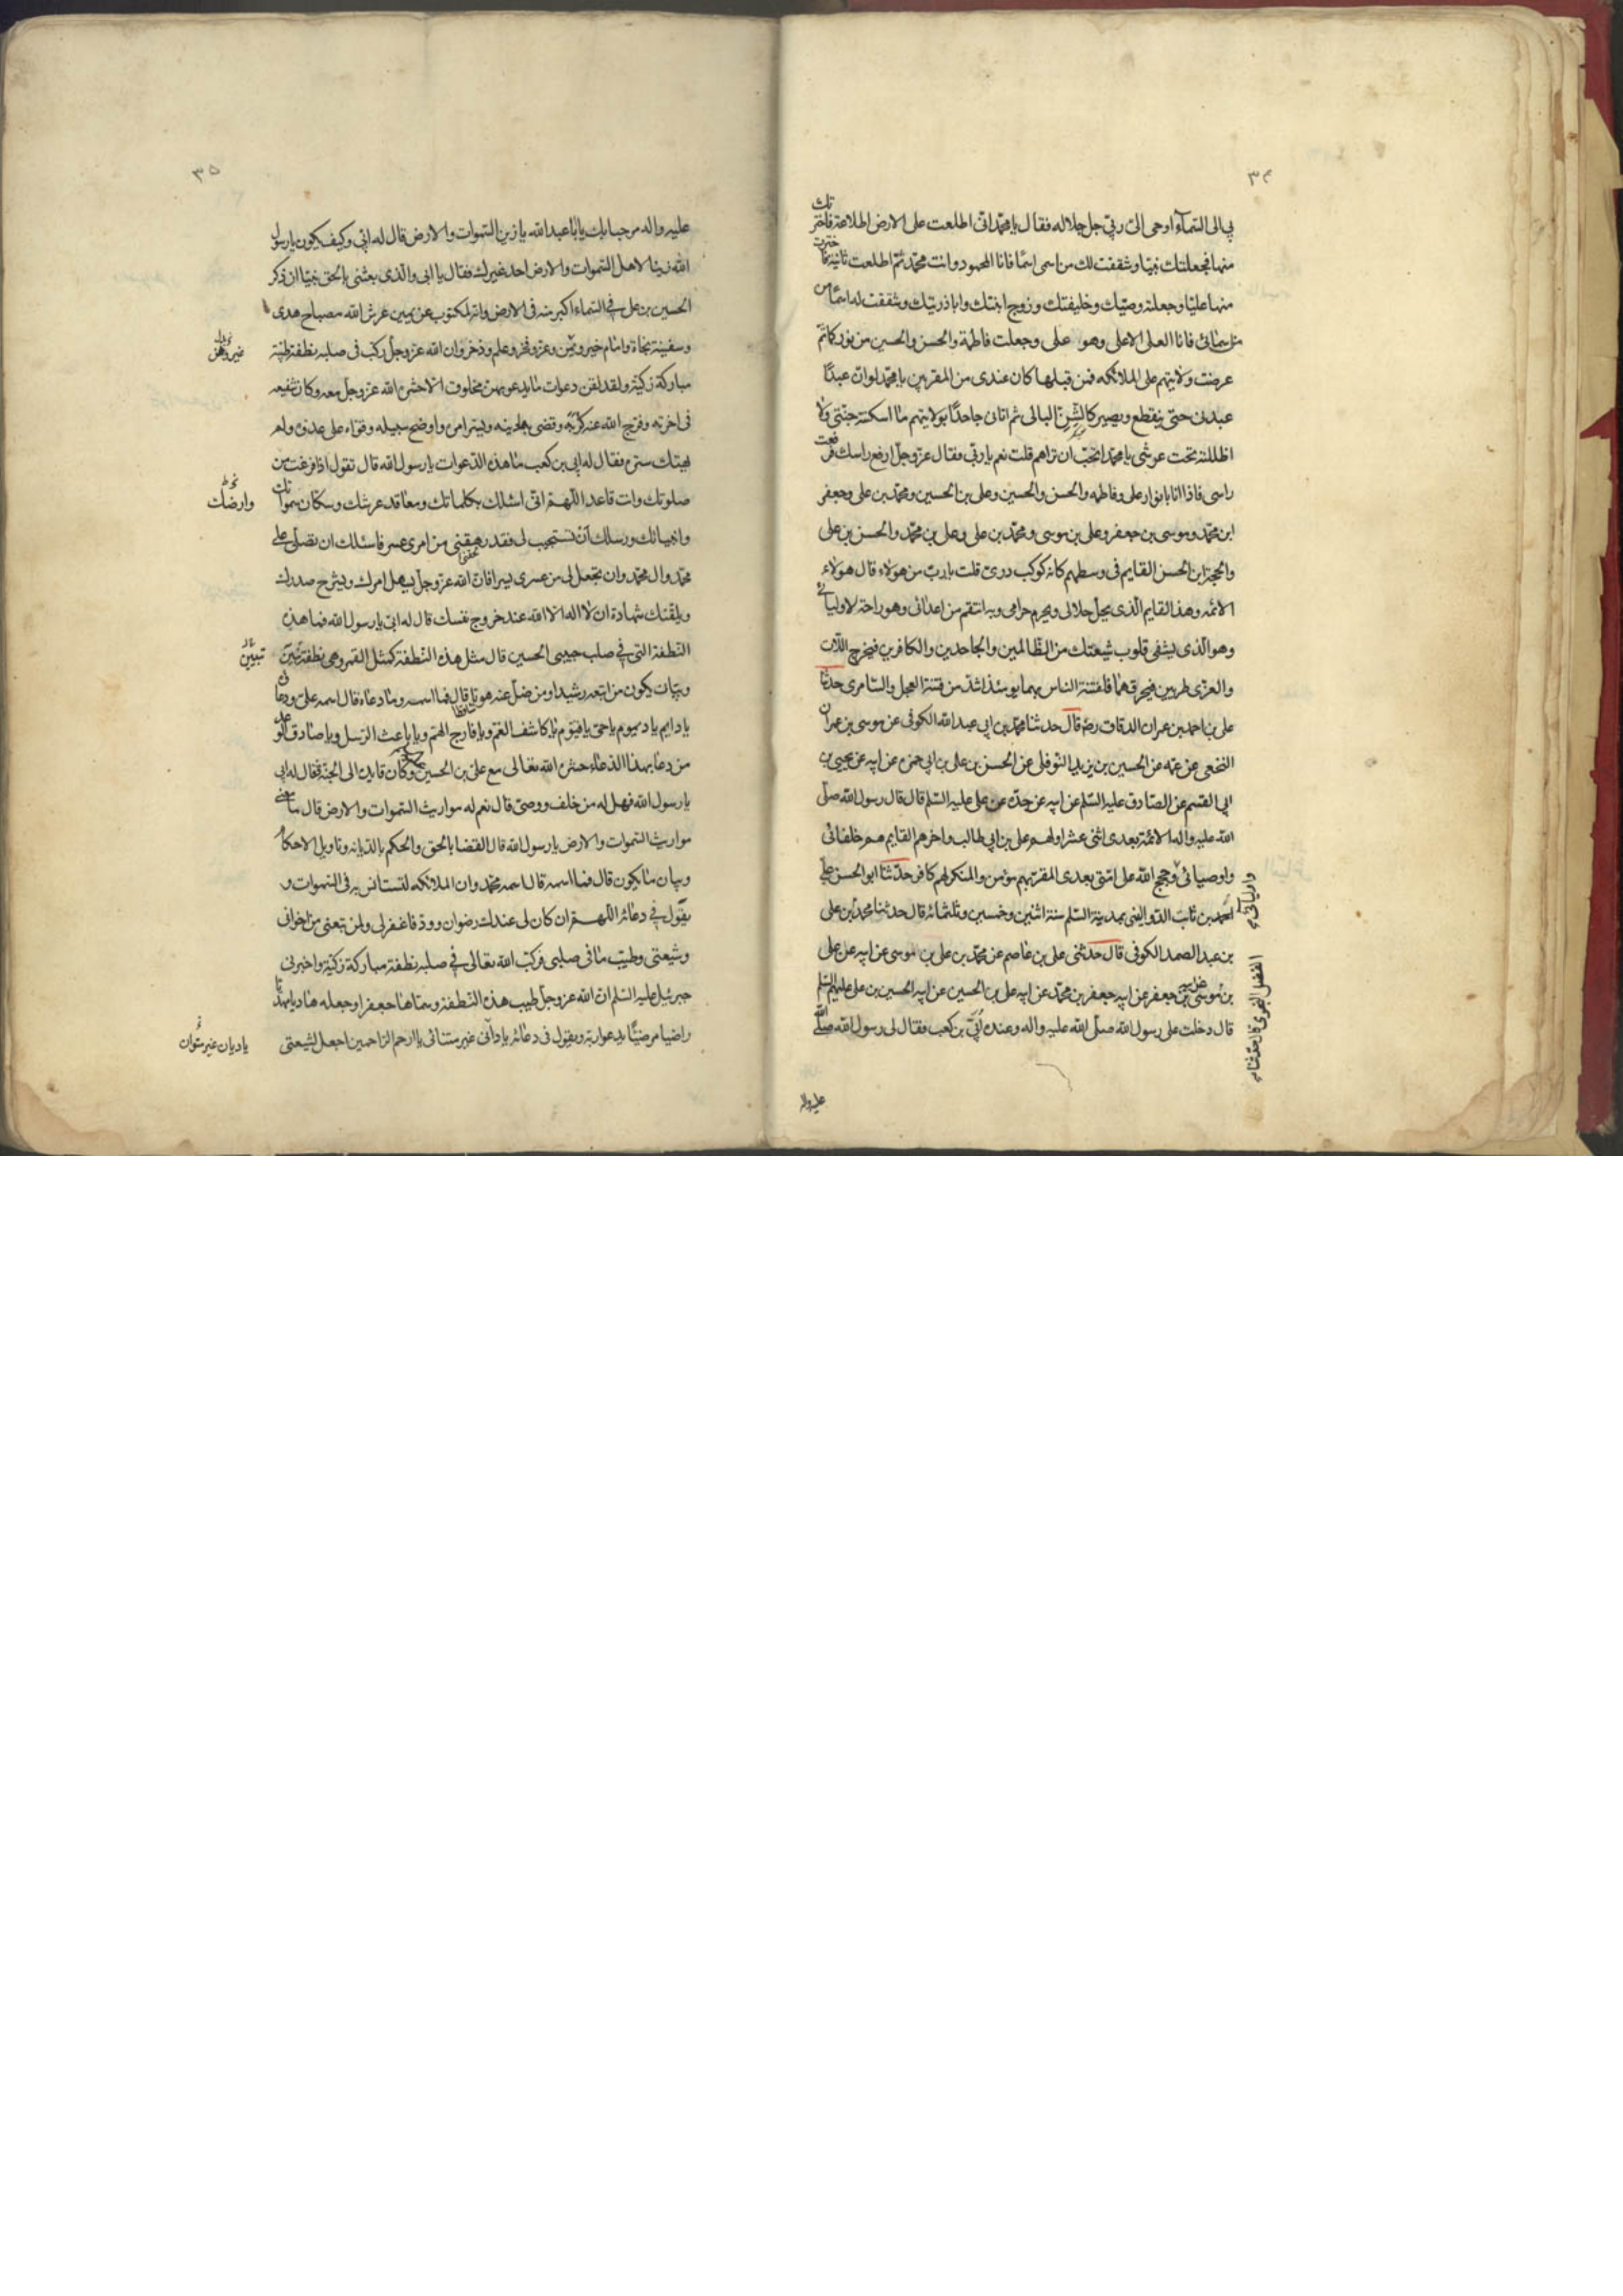 ٣٤
بي الى السّمآء اوحى الىّ ربّي جل جلاله فقال يا محمّد انّى اطلعت على الارض اطلاعة فاخترتك
منها فجعلتك نبيّا وشققت لك من اسمى اسمًا فانا المحمود وانت محمّد ثمّ اطلعت ثانية فاخترت
منها عليّا وجعلته وصيّك وخليفتك وزوج ابنتك وابا ذريتك وشققت له اسمًا من
اسمائى فانا العلى الاعلى وهو على وجعلت فاطمة والحسن والحسين من نوركما ثمّ
عرضت ولايتهم على الملائكه فمن قبلها كان عندى من المقربين يا محمّد لو انّ عبدًا
عبدنى حتّى ينقطع ويصير كالشنّ البالى ثم اتانى جاحدًا بولايتهم ما اسكنته جنّتى ولا
اظللته تحت عرشى يا محمّد اتحبّ ان تراهم قلت نعم يا ربّى فقال عزّ وجلّ ارفع راسك فرفعت
راسى فاذا انا بانوار على وفاطمه والحسن والحسين وعلى بن الحسين ومحمّد بن على وجعفر
ابن محمّد وموسى بن جعفر وعلى بن موسى ومحمّد بن على وعلى بن محمّد والحسن بن على
والحجة ابن الحسن القايم فى وسطهم كانه كوكب درىّ قلت يا ربّ من هولاء قال هولاء
الائمه وهذا القايم الّذى يحلّ حلالى ويحرم حرامى وبه انتقم من اعدائى وهو راحة لاوليائى
وهو الّذى يشفى قلوب شيعتك من الظّالمين والجاحدين والكافرين فيخرج اللّات
والعزّى طريين فيحرقهما فلفتنة الناس بهما يومئذ اشدّ من فتنة العجل والسّامرى حدثنا
على بن احمد بن عمران الدقاق رضه قال حدثنا محمّد بن ابى عبد الله الكوفى عن موسى بن عمران
النخعى عن عمّه عن الحسين بن يزيد النّوفلى عن الحسن بن على بن ابى حمزه عن ابيه عن يحيى بن
ابى القسم عن الصّادق عليه السّلم عن ابيه عن جدّه عن على عليه السّلم قال قال رسول الله صلّى
الله عليه واله الائمّة بعدى اثنى عشر اولهم على بن ابى طالب واخرهم القايم هم خلفائى
واوصيائى وحجج الله على امّتى بعدى المقرّ بهم مؤمن والمنكر لهم كافر حدّثنا ابو الحسن على
احمد بن ثابت الدّواليبى بمدينة السّلم سنة اثنين وخمسين وثلثمائة قال حدثنا محمّد بن على
بن عبد الصمد الكوفى قال حدثنى على بن عاصم عن محمّد بن على بن موسى عن ابيه عن على
بن موسى عن ابيه جعفر عن ابيه جعفر بن محمّد عن ابيه على بن الحسين عن ابيه الحسين بن على عليهم السّلم
قال دخلت على رسول الله صلّى الله عليه واله وعنده اُبَىّ بن كعب فقال لى رسول الله صلّى الله
واوليائى
الفضل النحوى قال حدّثنا
عليه واله
٣٥
عليه واله مرحبا بك يا ابا عبد الله يا زين السّموات والارض قال له ابىّ وكيف يكون يا رسول
الله زينا لاهل السّموات والارض احد غيرك فقال يا ابى والّذى بعثنى بالحق نبيّا ان ذكر
الحسين بن على فى السّماء اكبر منه فى الارض وانّه لمكتوب عن يمين عرش الله مصباح هدى
وسفينة نجاة وامام خير ويمن وعزّ وفخر وعلم وذخر وان الله عزّ وجلّ ركب فى صلبه نطفة طيّبة
مباركة زكيّة ولقد لقن دعوات ما يدعو بهن مخلوق الّا حشره الله عز وجل معه وكان شفيعه
فى اخرته وفرّج الله عنه كربه وقضى بها دينه ويسّر امره واوضح سبيله وقوّاه على عدوّه ولم
يهتك ستره فقال له ابى بن كعب ما هذه الدّعوات يا رسول الله قال تقول اذا فرغت من
صلوتك وانت قاعد اللّهمّ انّى اسئلك بكلماتك ومعاقد عرشك وسكّان سمواتك
وانبيائك ورسلك أن تستجيب لى فقد رهقنى من امرى عسر فاسئلك ان تصلّى على
محمّد وال محمّد وان تجعل لى من عسرى يسرا فانّ الله عزّ وجلّ يسهل امرك ويشرح صدرك
ويلقنك شهادة ان لا اله الا الله عند خروج نفسك قال له ابىّ يا رسول الله فما هذه
النّطفة التى فى صلب حبيبى الحسين قال مثل هذه النّطفة كمثل القمر وهى نطفة تبيين
وبيان يكون من اتبعه رشيدا ومن ضلّ عنه هويّا قال فما اسمه وما دعاءه قال اسمه علىّ ودعاؤه
يا دايم يا ديموم يا حىّ يا قيّوم يا كاشف الغمّ ويا فارج الهمّ ويا باعث الرّسل ويا صادق الوعد
من دعا بهذا الدّعاء حشره الله تعالى مع علىّ بن الحسين وكان قايده الى الجنة فقال له ابى
يا رسول الله فهل له من خلف ووصىّ قال نعم له مواريث السّموات والارض قال ما معنى
مواريث السّموات والارض يا رسول الله قال القضا بالحق والحكم بالدّيانه وتاويل الاحكام
وبيان ما يكون قال فما اسمه قال اسمه محمّد وان الملائكه لتستانس به فى السّموات و
يقول فى دعائه اللّهمّ ان كان لى عندك رضوان وودّ فاغفر لى ولمن تبعنى من اخوانى
وشيعتى وطيّب ما فى صلبى فركّب الله تعالى فى صلبه نطفة مباركة زكيّة واخبرنى
جبرئيل عليه السّلم انّ الله عزّ وجلّ طيب هذه النّطفة وسمّاها جعفرا وجعله هاديا مهديّا
راضيا مرضيّا يدعو اربّه ويقول فى دعائه يا دانى غير متنائى يا ارحم الرّاحمين اجعل لشيعتى
وارضك
تبيين
يا ديان غير متوان